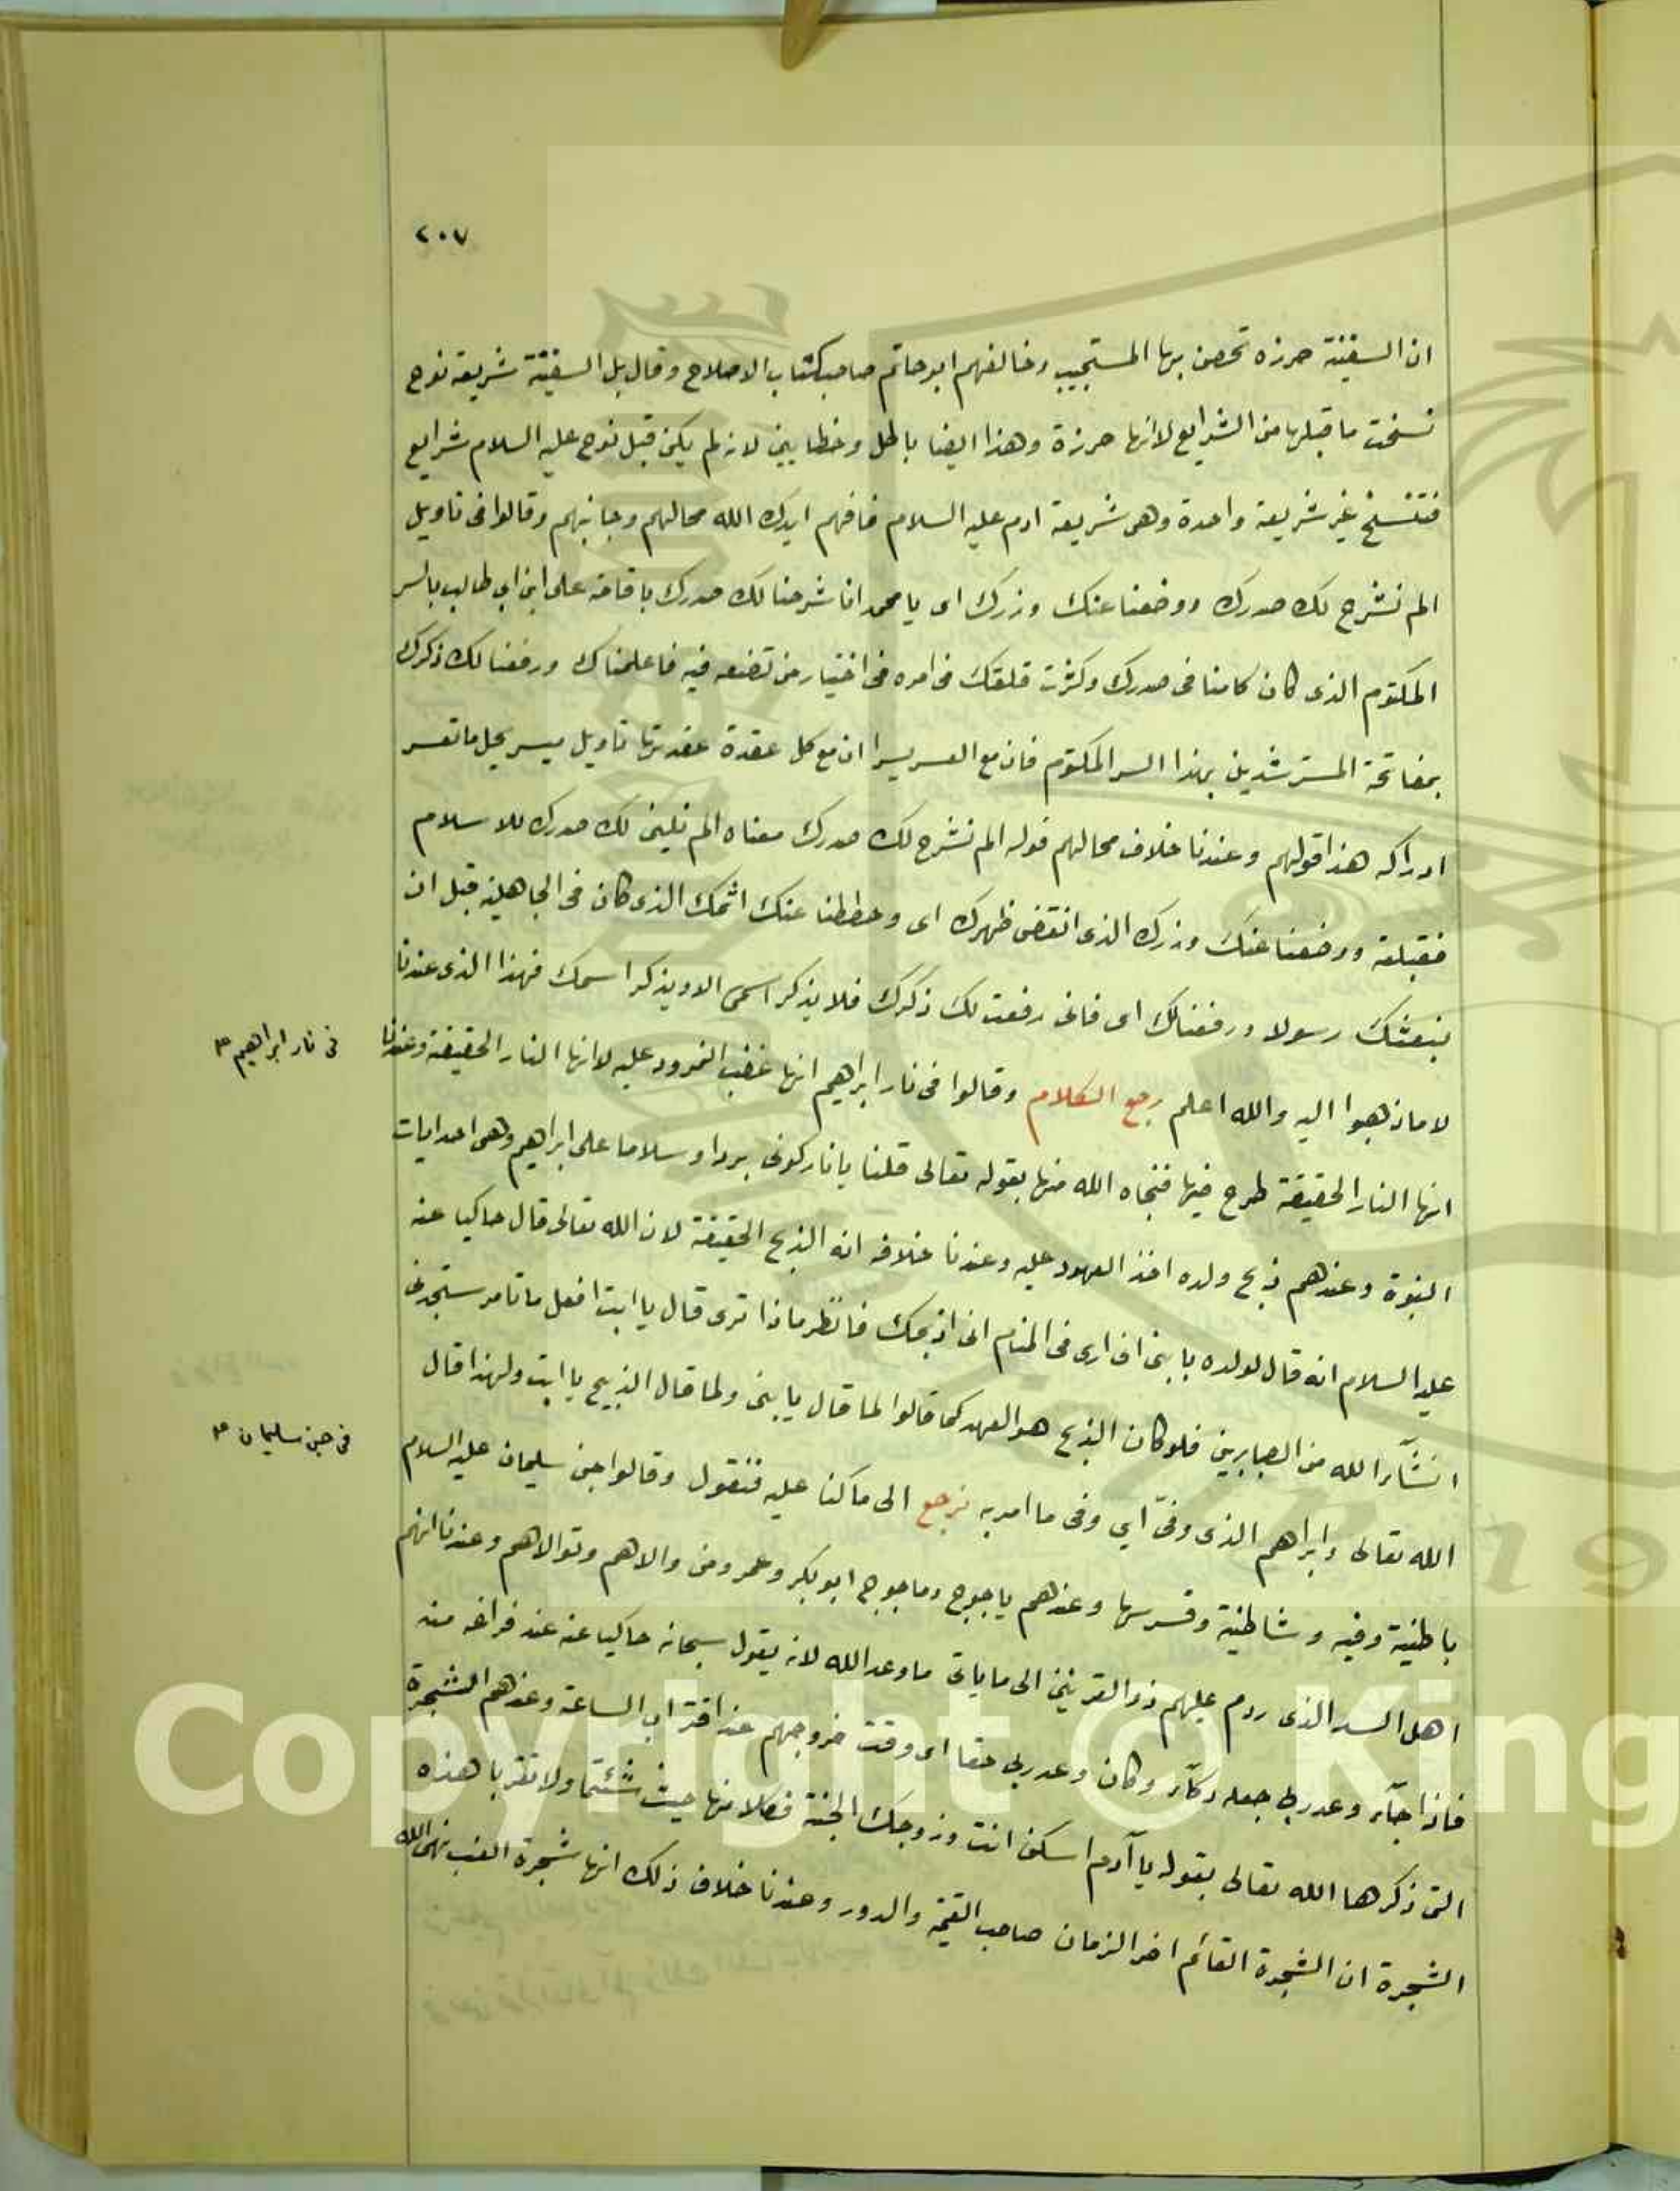 ٢٠٧
ان السفينة حرزه تحصن بها المستجيب وخالفهم ابو حاتم صاحب كتاب الاصلاح وقال بل السفينة شريعة نوح
نسخت ما قبلها من الشرايع لانها حرزة وهذا ايضا باطل وخطا بين لانه لم يكن قبل نوح عليه السلام شرايع
فتنسخ غير شريعة واحدة وهى شريعة ادم عليه السلام فافهم ايدك الله محالهم وجانبهم وقالوا فى تاويل
الم نشرح لك صدرك ووضعنا عنك وزرك اى يا محمد انا شرحنا لك صدرك باقامة على ابن ابى طالب بالسر
المكتوم الذى كان كامنا فى صدرك وكثرت قلقتك فى امره فى اختيار من تضعه فيه فاعلمناك ورفعنا لك ذكرك
بمفاتحة المسترشدين بهذا السر المكتوم فان مع العسر يسرا ان مع كل عقدة عقدتها تاويل ميسر يحل ما تعسر
ادراكه هذا قولهم وعندنا خلاف محالهم قوله الم نشرح لك صدرك معناه الم نلين لك صدرك للاسلام
فقبلته ووضعنا عنك وزرك الذى انقض ظهرك اى وحططنا عنك اثمك الذى كان فى الجاهلية قبل ان
نبعثك رسولا ورفعنا لك اى فانى رفعت لك ذكرك فلا يذكر اسمى الا ويذكر اسمك فهذا الذى عندنا
لا ما ذهبوا اليه والله اعلم رجع الكلام وقالوا فى نار ابراهيم انها غضب النمرود عليه لا انها النار الحقيقة وعندنا
فى نار ابراهيم ع م
انها النار الحقيقة طرح فيها فنجاه الله منها بقوله تعالى قلنا يا نار كونى بردا وسلاما على ابراهيم وهى احد ايات
النبوة وعندهم ذبح ولده اخذ العهود عليه وعندنا خلافه انه الذبح الحقيقة لان الله تعالى قال حاكيا عنه
عليه السلام انه قال لولده يا بنى انى ارى فى المنام انى اذبحك فانظر ماذا ترى قال يا ابت افعل ما تامر ستجدنى
انشآء الله من الصابرين فلو كان الذبح هو العهد كما قالوا لما قال يا بنى ولما قال الذبيح يا ابت ولهذا قال
الله تعالى وابراهيم الذى وفىّ اي وفى ما امر به نرجع الى ما كنا عليه فنقول وقالوا جن سليمان عليه السلام
فى جن سليمان ع م
باطنية وفيه وشاطنية وفسرسها وعندهم ياجوج وماجوج ابو بكر وعمر ومن والاهم وتوالاهم وعندنا انهم
اهل السد الذى ردم عليهم ذو القرنين الى ما ياتى ما وعد الله لانه يقول سبحانه حاكيا عنه عند فراغه منه
فاذا جآء وعد ربى جعله دكآء وكان وعد ربى حقا اى وقت خروجهم عند اقتراب الساعة وعندهم الشجرة
التى ذكرها الله تعالى بقوله يا آدم اسكن انت وزوجك الجنة فكلا منها حيث شئتما ولا تقربا هذه
الشجرة ان الشجرة القائم اخر الزمان صاحب القيمة والدور وعندنا خلاف ذلك انها شجرة العنب نهى الله
Copyright © King
19